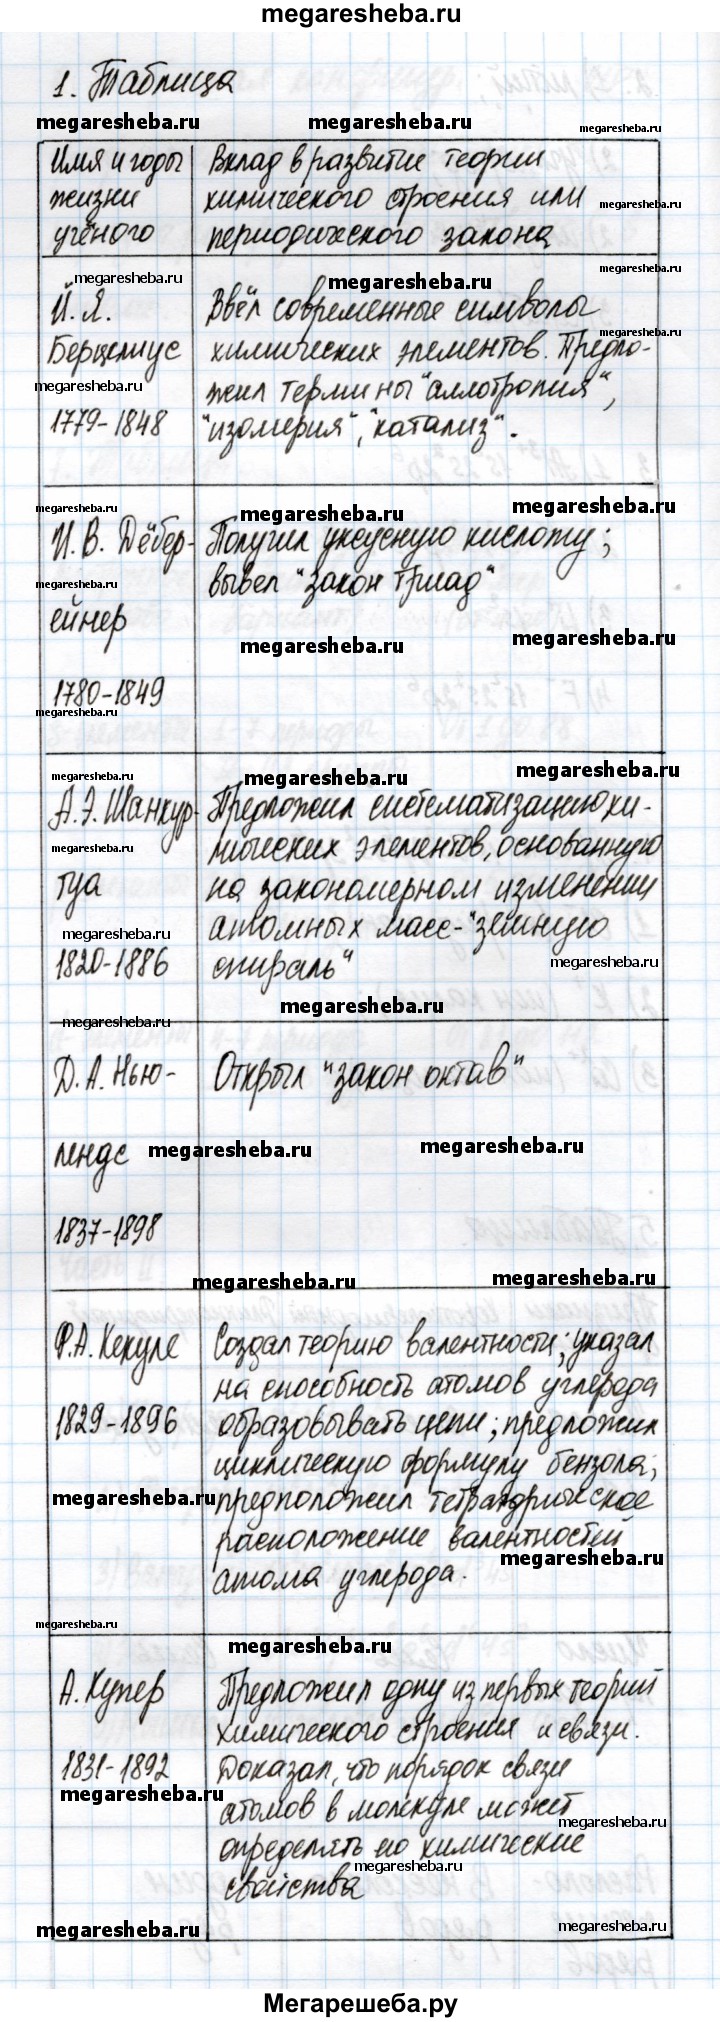 megaresheba.ru
1. Таблица
megaresheba.ru megaresheba.ru megaresheba.ru
Имя и годы жизни учёного
Вклад в развитие теории
химического строения или
периодического закона
megaresheba.ru
megaresheba.ru
megaresheba.ru
megaresheba.ru
Й. Я.
Берцелиус
megaresheba.ru
1779-1848
Ввёл современные символы
megaresheba.ru
химических элементов. Предло-
жил термины "аллотропия",
"изомерия", "катализ".
megaresheba.ru
megaresheba.ru
megaresheba.ru
И. В. Дёбер-
megaresheba.ru
ейнер
1780-1849
megaresheba.ru
Получил уксусную кислоту;
вывел "закон триад"
megaresheba.ru
megaresheba.ru
megaresheba.ru
megaresheba.ru
megaresheba.ru
А. Э. Шанкур-
megaresheba.ru
туа
megaresheba.ru
1820-1886
Предложил систематизацию хи-
мических элементов, основанную
на закономерном изменении
атомных масс - "земную
спираль"
megaresheba.ru
megaresheba.ru
megaresheba.ru
Д. А. Нью-
лендс
1837-1898
Открыл "закон октав"
megaresheba.ru
megaresheba.ru
megaresheba.ru
megaresheba.ru
Ф. А. Кекуле
1829-1896
megaresheba.ru
Создал теорию валентности; указал
на способность атомов углерода
образовывать цепи; предложил
циклическую формулу бензола;
предположил тетраэдрическое
расположение валентностей
megaresheba.ru
атома углерода.
megaresheba.ru
megaresheba.ru
А. Купер
1831-1892
megaresheba.ru
Предложил одну из первых теорий
химического строения и связи.
Доказал, что порядок связи
атомов в молекуле может
megaresheba.ru
определять его химические
megaresheba.ru
свойства
megaresheba.ru
megaresheba.ru
Мегарешеба.ру